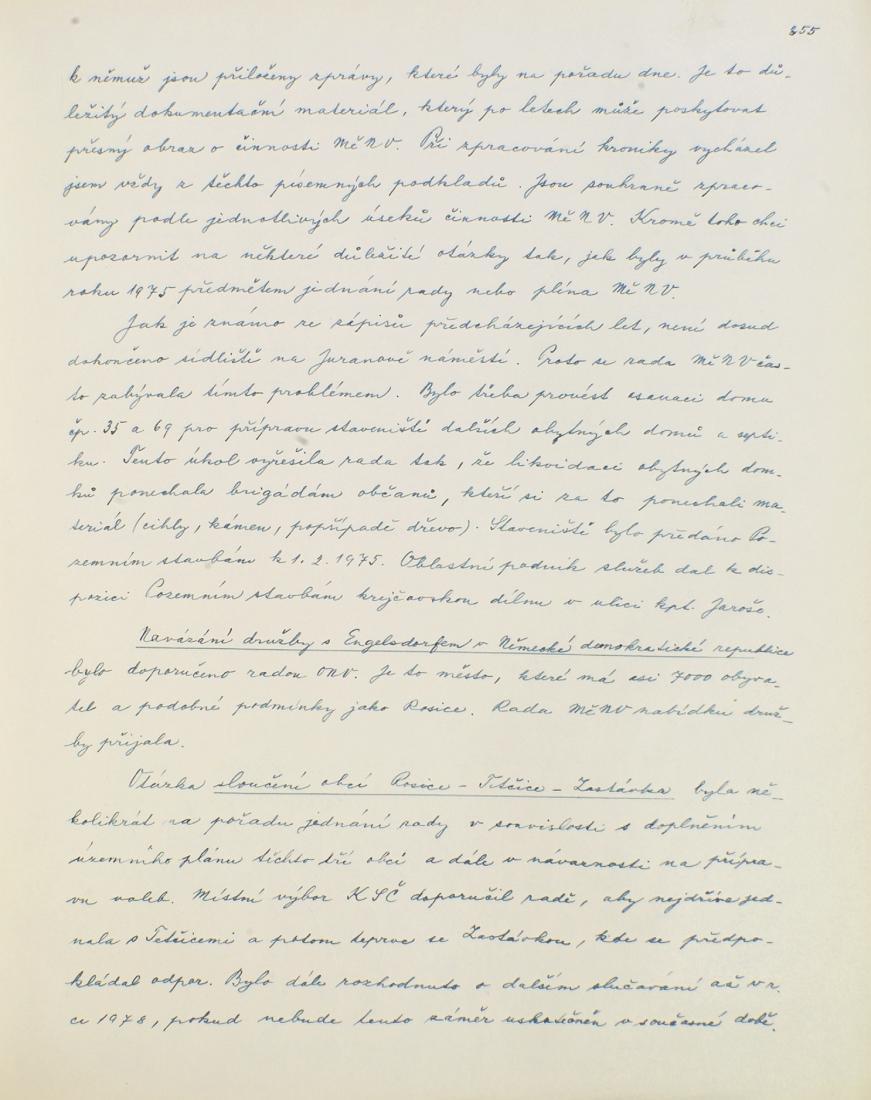 855
k němuž jsou přiloženy zprávy, které byly na pořadu dne. Je to dů-
ležitý dokumentační materiál, který po letech může poskytovat
přesný obraz o činnosti MěNV. Při zpracování kroniky vycházel
jsem vždy z těchto písemných podkladů. Jsou souhrnně zpraco-
vány podle jednotlivých úseků činnosti MěNV. Kromě toho chci
upozornit na některé důležité otázky tak, jak byly v průběhu
roku 1975 předmětem jednání rady nebo pléna MěNV.
Jak je známo ze zápisů předcházejících let, není dosud
dokončeno sídliště na Juranově náměstí. Proto se rada MěNV čas-
to zabývala tímto problémem. Bylo třeba provést asanaci domu
čp. 35 a 69 pro přípravu staveniště dalších obytných domů a septi-
ku. Tento úkol vyřešila rada tak, že likvidaci obytných dom-
ků ponechala brigádám občanů, kteří si za to ponechali ma-
teriál (cihly, kámen, popřípadě dřevo). Staveniště bylo předáno Po-
zemním stavbám k 1. 2. 1975. Oblastní podnik služeb dal k dis-
pozici Pozemním stavbám krejčovskou dílnu v ulici kpt. Jaroše.
Navázání družby s Engelsdorfem v Německé demokratické republice
bylo doporučeno radou ONV. Je to město, které má asi 7000 obyva-
tel a podobné podmínky jako Rosice. Rada MěNV nabídku druž-
by přijala.
Otázka sloučení obcí Rosice - Tetčice - Zastávka byla ně-
kolikrát na pořadu jednání rady v souvislosti s doplněním
územního plánu těchto tří obcí a dále v návaznosti na přípra-
vu voleb. Místní výbor KSČ doporučil radě, aby nejdříve jed-
nala s Tetčicemi a potom teprve se Zastávkou, kde se předpo-
kládal odpor. Bylo dále rozhodnuto o dalším slučování až v r.
ce 1978, pokud nebude tento záměr uskutečněn v současné době.